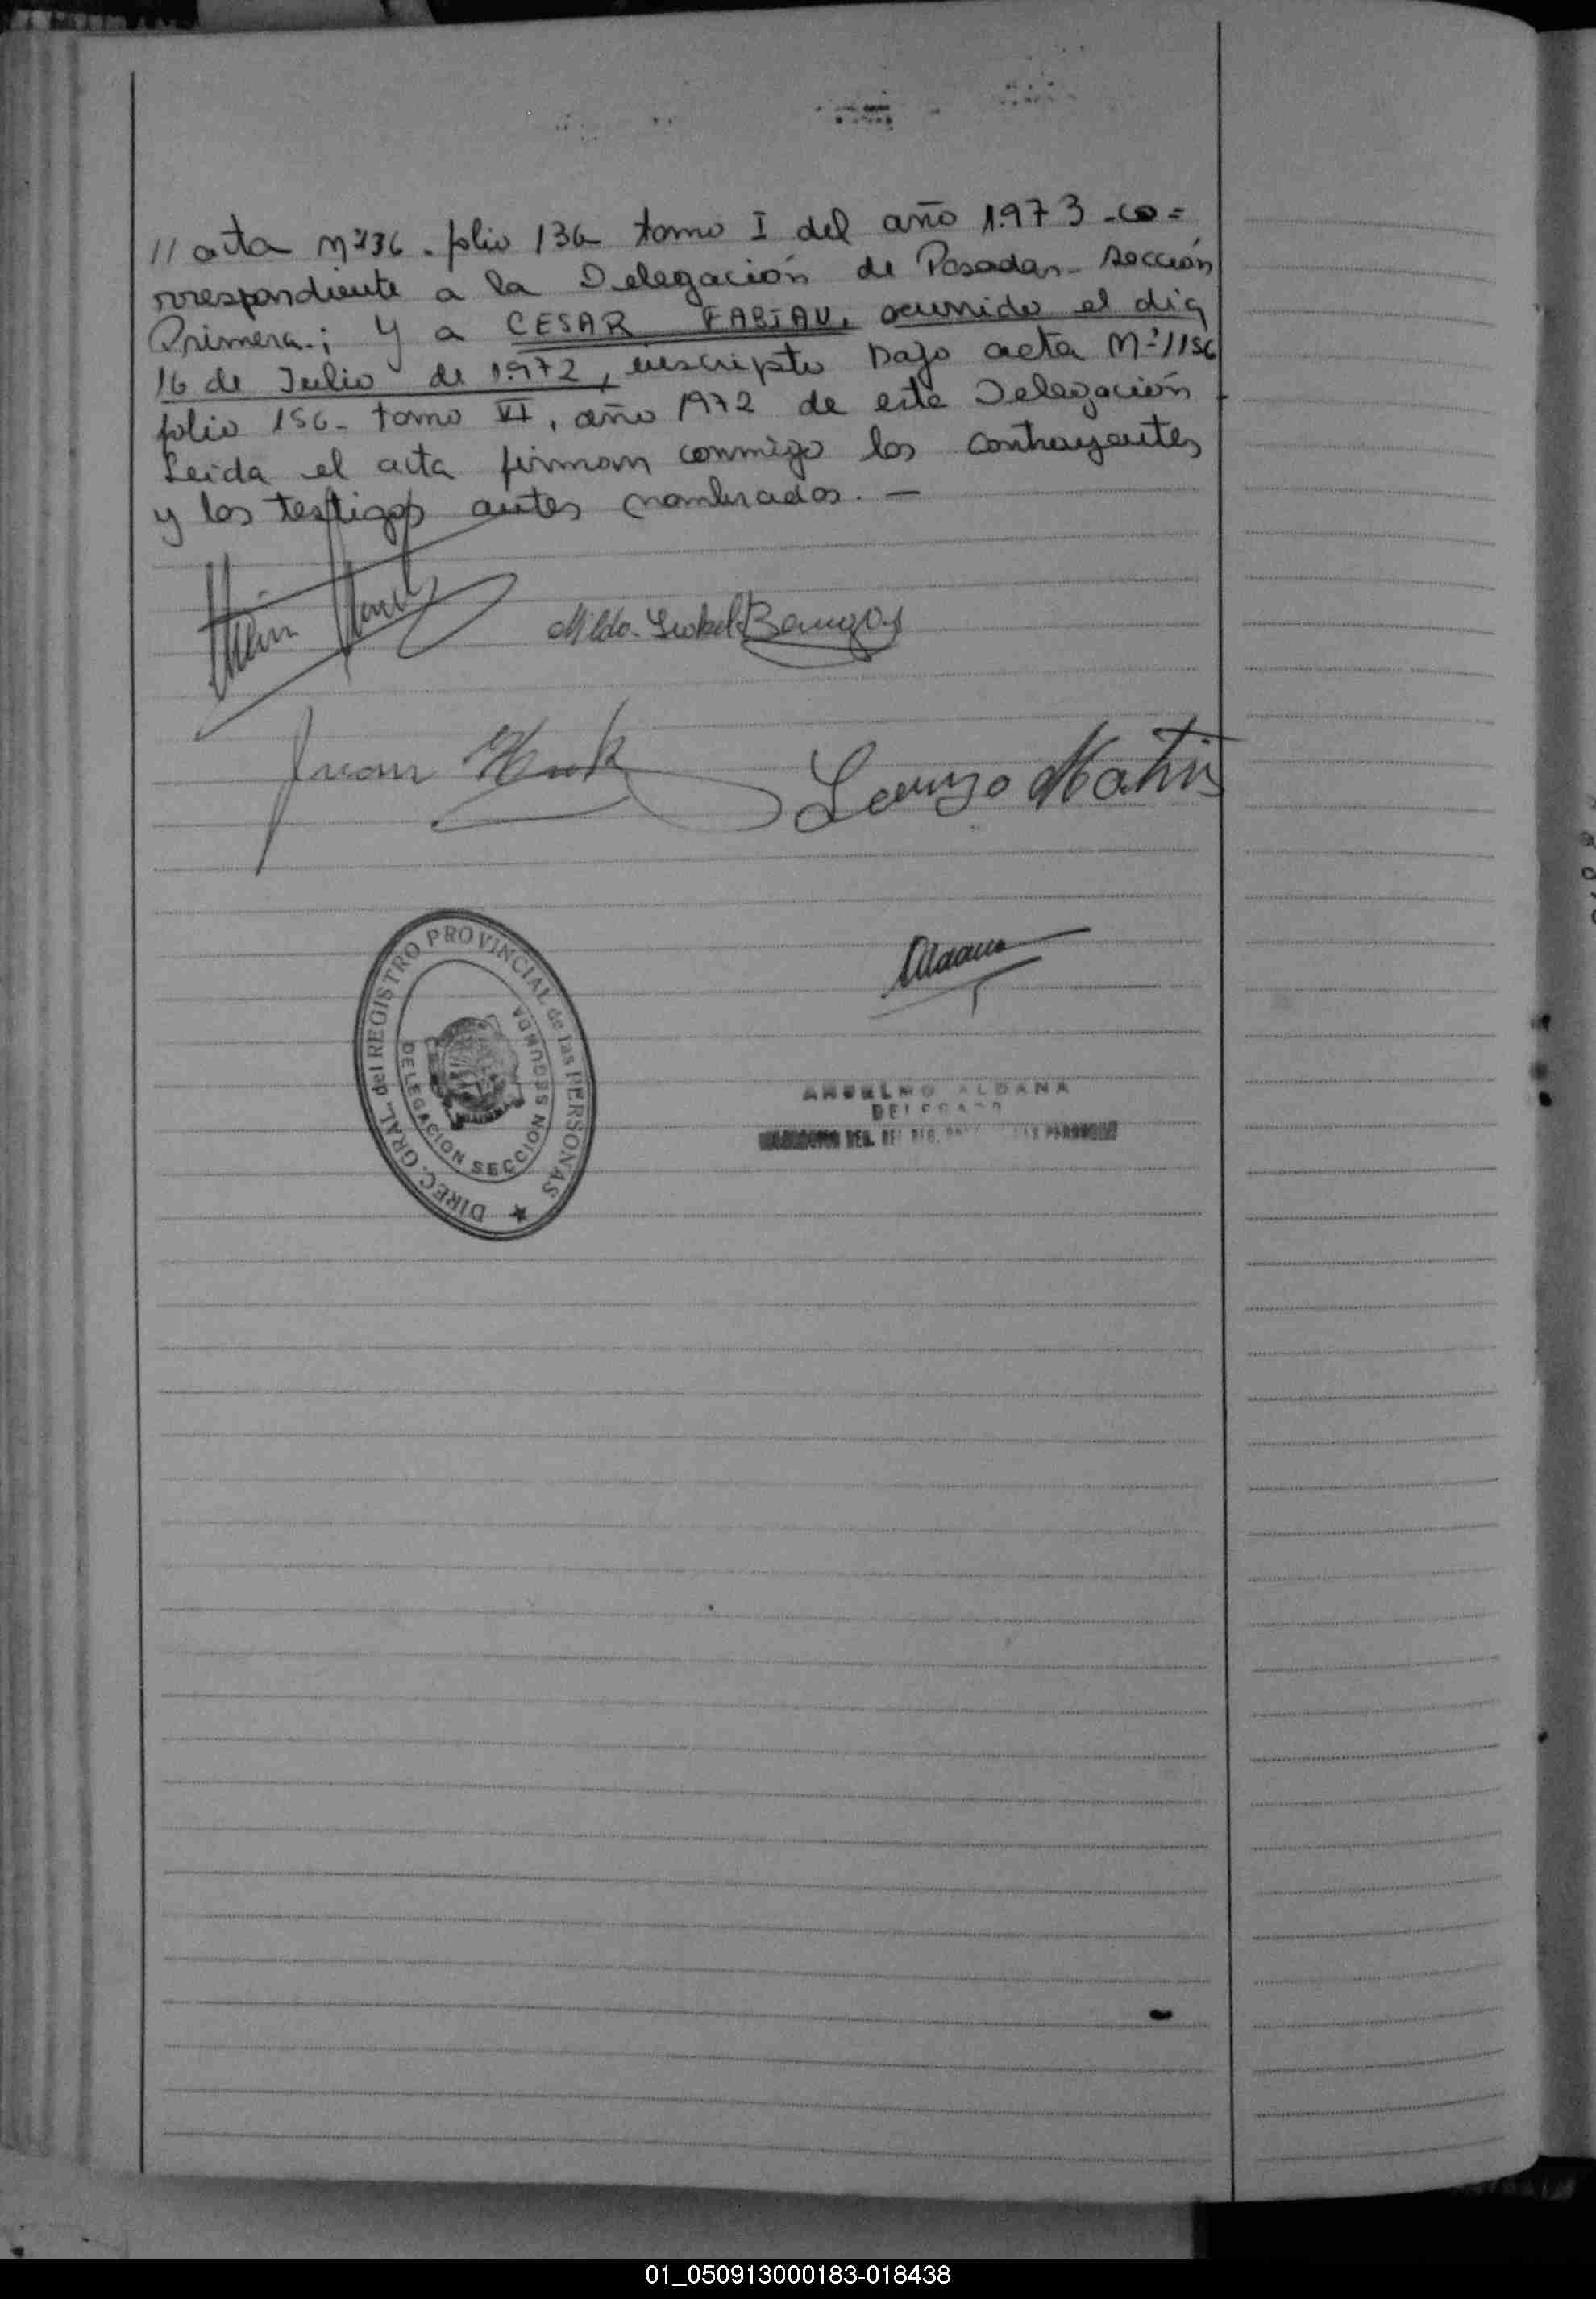 // acta Nº136 - folio 136 tomo I del año 1.973 - co=
rrespondiente a la Delegación de Posadas - Sección
Primera.; y a CESAR FABIAN, ocurrido el día
16 de Julio de 1.972, inscripto bajo acta Nº1156
folio 156 - tomo VI, año 1972 de esta Delegación.
Leida el acta firman conmigo los contrayentes
y los testigos antes nombrados. —
Juan
Lorenzo
DIREC. GRAL. del REGISTRO PROVINCIAL de las PERSONAS
DELEGACION SECCION SEGUNDA
ANSELMO ALDANA
DELEGADO
01_050913000183-018438